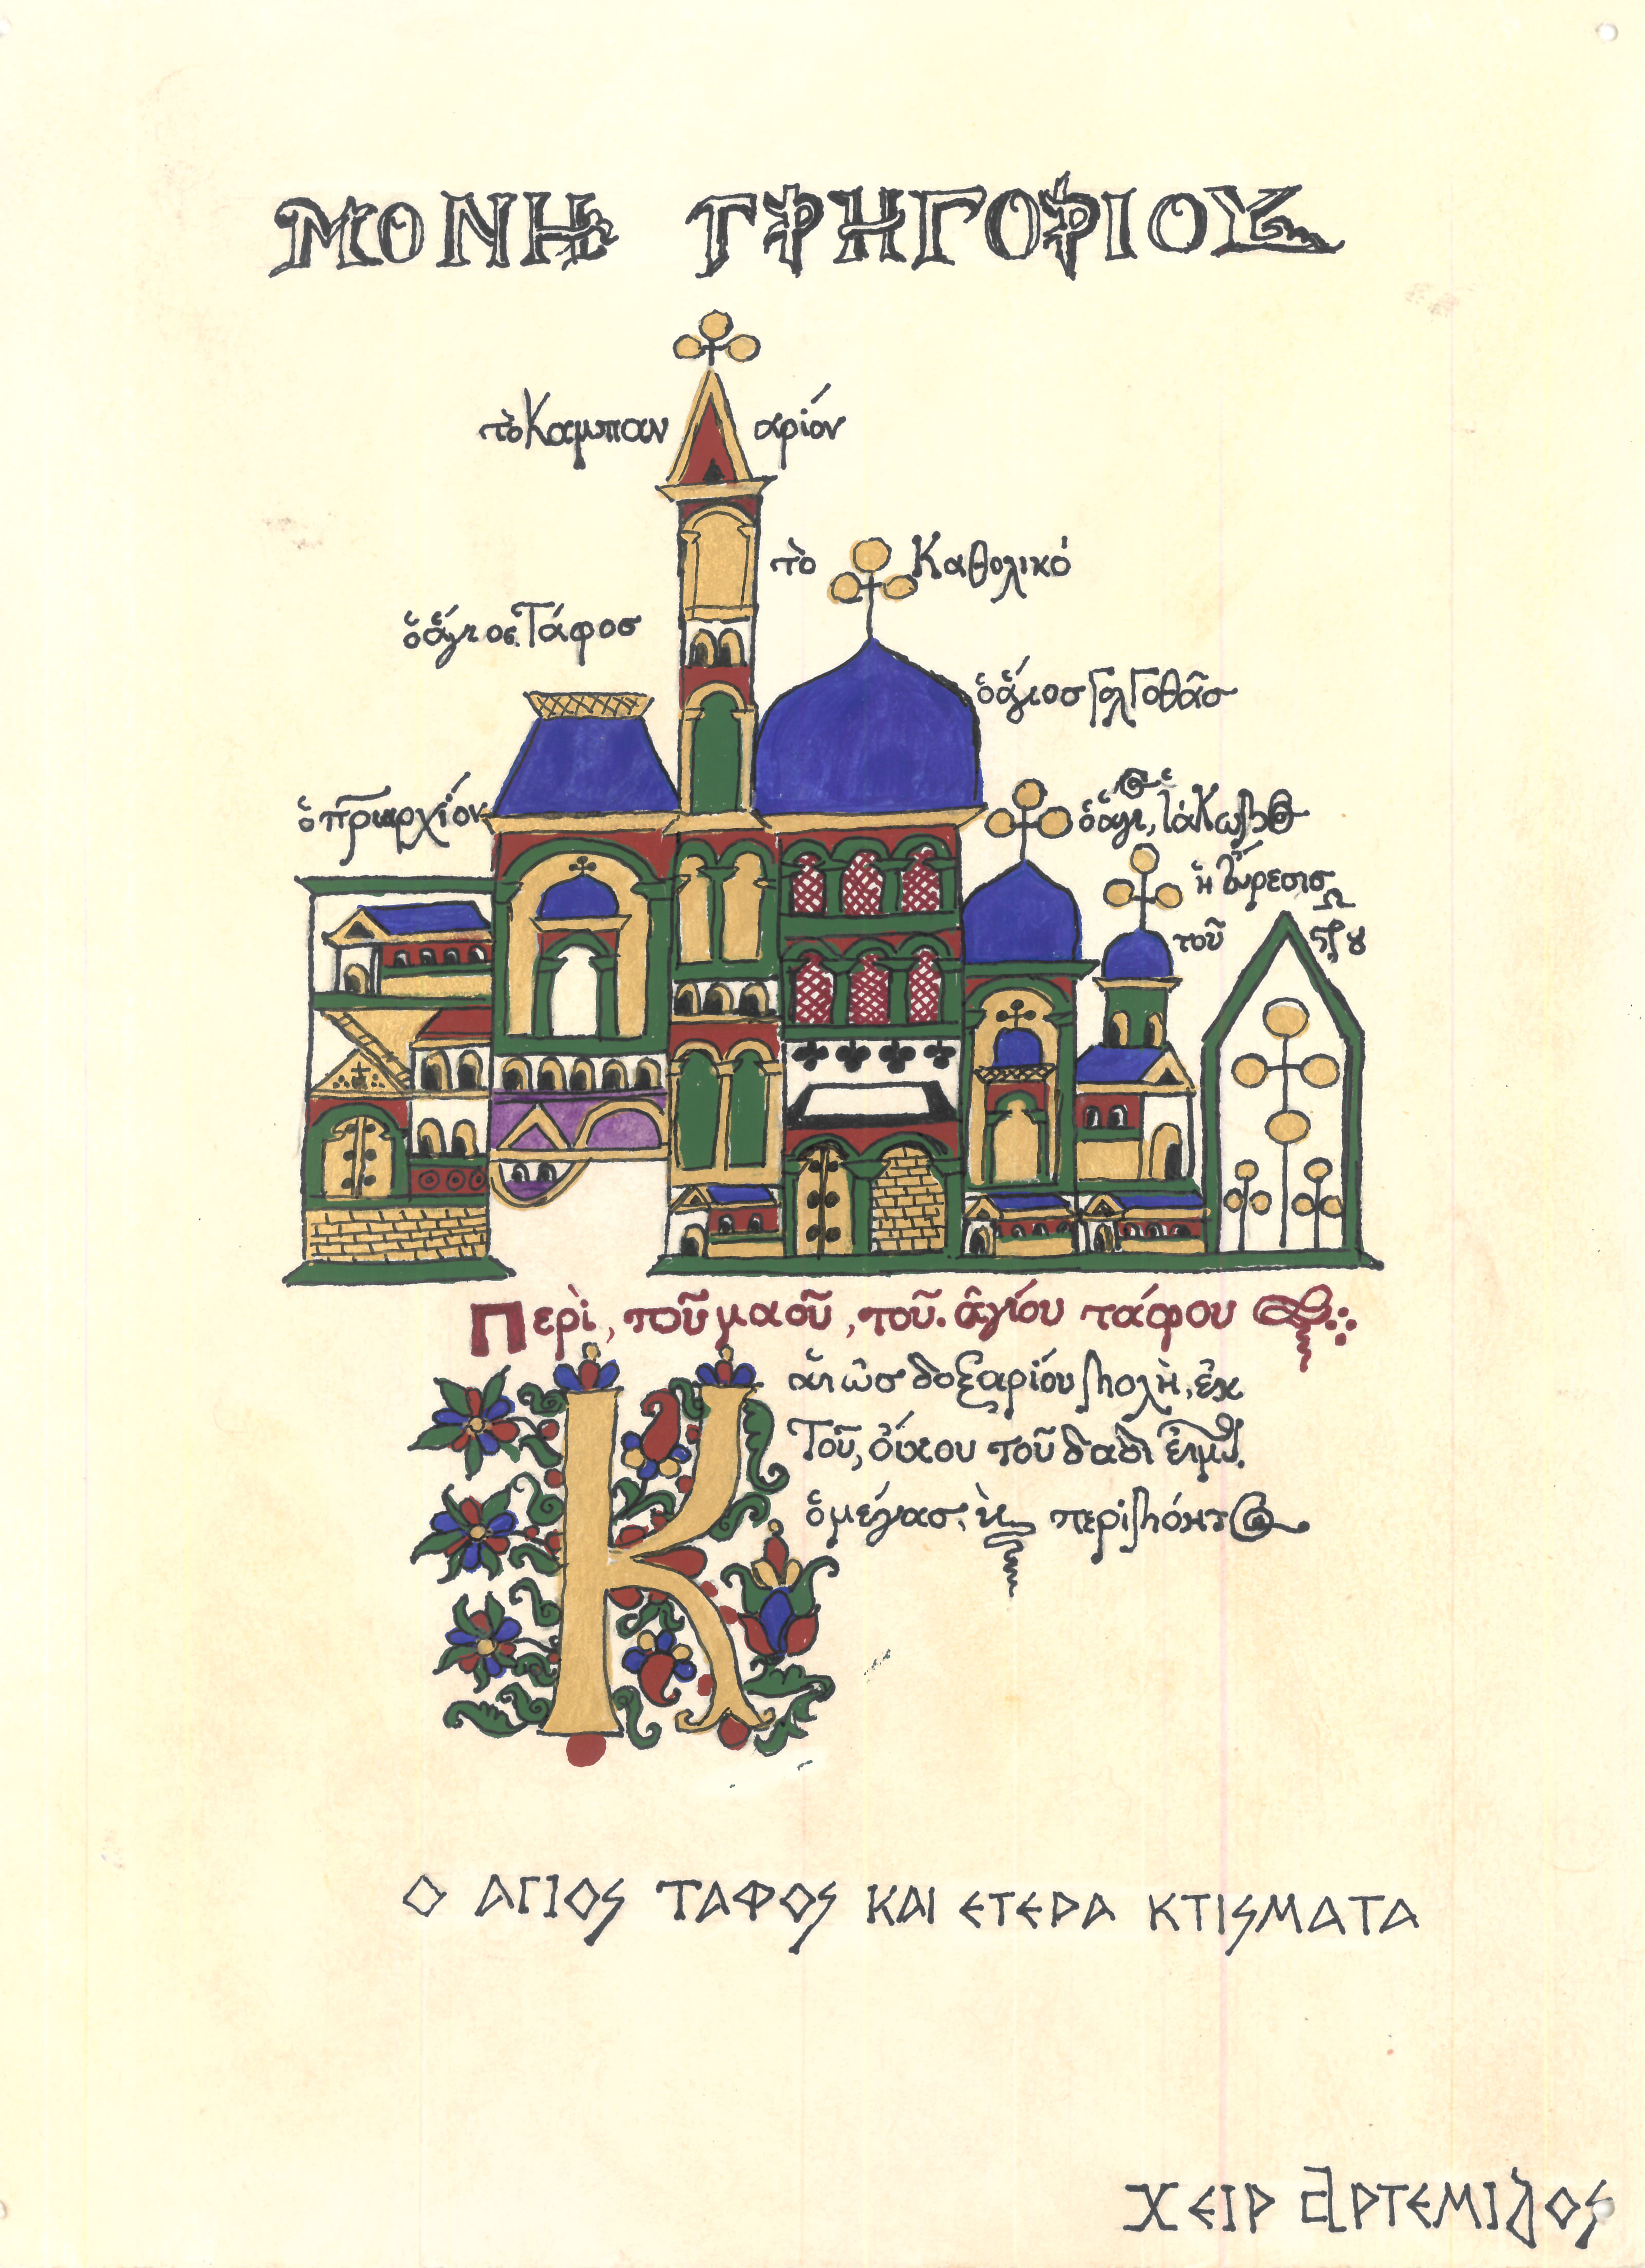 ΜΟΝΗ ΓΡΗΓΟΡΙΟΥ
τὸ Καμπαν αρίον
τὸ Καθολικό
ὁ ἅγιος Τάφοσ
ὁ ἅγιοσ Γολγοθᾶσ
ὁ πριαρχίον
ὁ ἅγι, ἰάκωβο
ἡ εὕρεσισ
τοῦ
Περὶ, τοῦ μαοῦ, τοῦ. ἁγίου τάφου
Κ
ὡσ δοξαρίου βολὴ, ἐκ
Τοῦ, οἴκου τοῦ δαδὶ
ὁ μέγασ,
Ο ΑΓΙΟΣ ΤΑΦΟΣ ΚΑΙ ΕΤΕΡΑ ΚΤΙΣΜΑΤΑ
ΧΕΙΡ ΑΡΤΕΜΙΔΟΣ